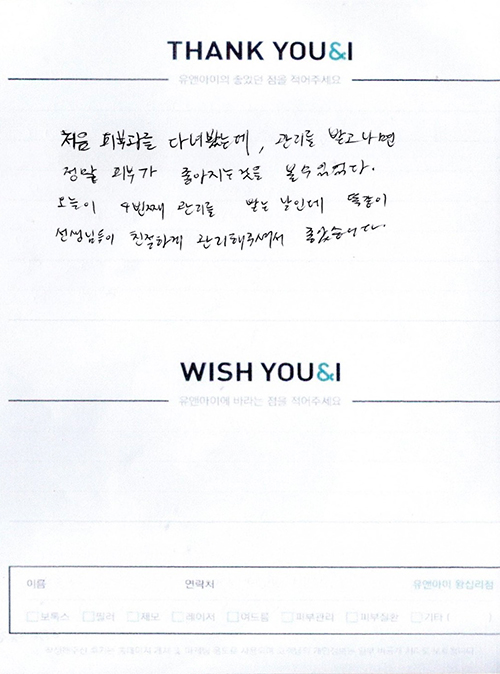 THANK YOU&I
유앤아이의 좋았던 점을 적어주세요
처음 피부과를 다녀봤는데, 관리를 받고나면
정말 피부가 좋아지는것을 볼수있었다.
오늘이 4번째 관리를 받는 날인데 똑같이
선생님들이 친절하게 관리해주셔서 좋았습니다.
WISH YOU&I
유앤아이에 바라는 점을 적어주세요
이름 연락처 유앤아이 왕십리점
보톡스 필러 제모 레이저 여드름 피부관리 피부질환 기타 ( )